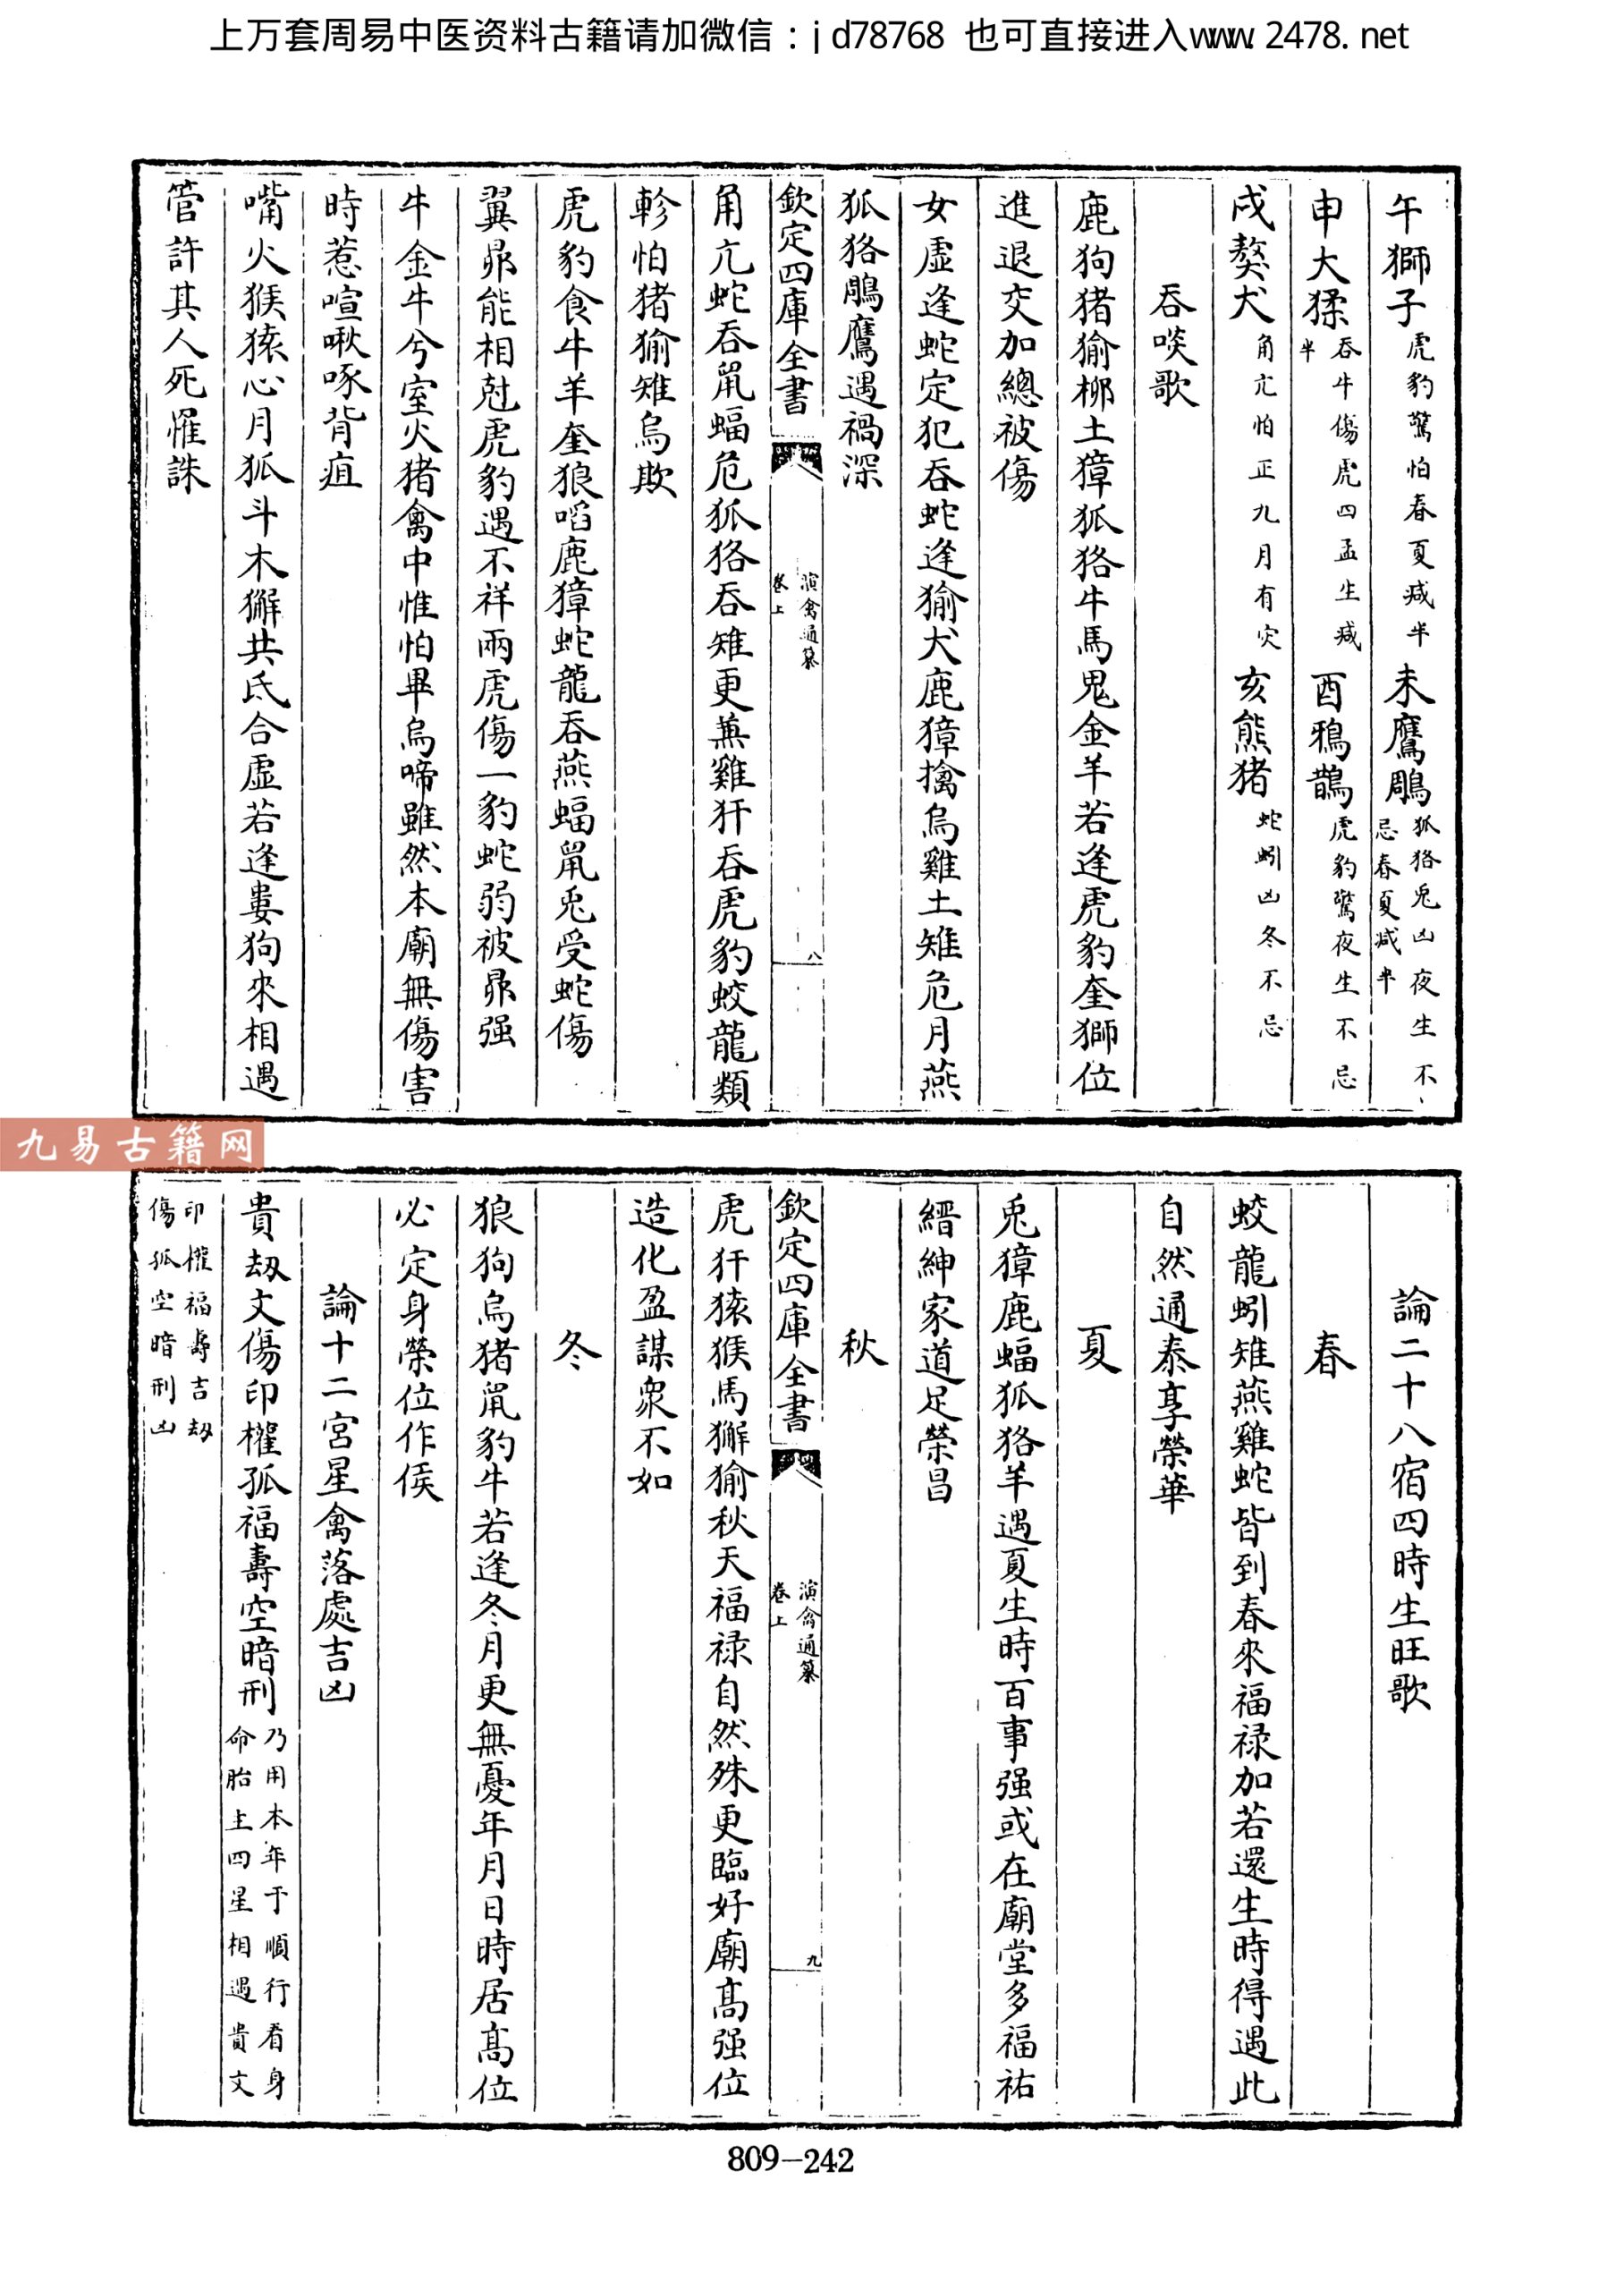 上万套周易中医资料古籍请加微信：jd78768 也可直接进入www.2478.net
午獅子虎豹驚怕春夏減半未鷹鵰狐狢兎凶夜生不忌春夏減半
申大猱吞牛傷虎四孟生減半酉鴉鵲虎豹驚夜生不忌
戌獒犬角亢怕正九月有灾亥熊猪蛇蚓凶冬不忌
吞啖歌
鹿狗猪㺄柳土獐狐狢牛馬鬼金羊若逢虎豹奎獅位
進退交加總被傷
女虛逢蛇定犯吞蛇逢㺄犬鹿獐擒烏雞土雉危月燕
狐狢鵰鷹遇禍深
欽定四庫全書
演禽通纂
卷上
八
角亢蛇吞鼠蝠危狐狢吞雉更兼雞犴吞虎豹蛟龍類
軫怕猪㺄雉烏欺
虎豹食牛羊奎狼啗鹿獐蛇龍吞燕蝠鼠兎受蛇傷
翼昴能相尅虎豹遇不祥兩虎傷一豹蛇弱被昴强
牛金牛兮室火猪禽中惟怕畢烏啼雖然本廟無傷害
時惹喧啾啄背疽
嘴火猴猿心月狐斗木獬共氐合虛若逢婁狗來相遇
管許其人死罹誅
九易古籍网
論二十八宿四時生旺歌
春
蛟龍蚓雉燕雞蛇皆到春來福禄加若還生時得遇此
自然通泰享榮華
夏
兎獐鹿蝠狐狢羊遇夏生時百事强或在廟堂多福祐
縉紳家道足榮昌
秋
欽定四庫全書
演禽通纂
卷上
九
虎犴猿猴馬獬㺄秋天福禄自然殊更臨好廟髙强位
造化盈謀衆不如
冬
狼狗烏猪鼠豹牛若逢冬月更無憂年月日時居髙位
必定身榮位作侯
論十二宮星禽落處吉凶
貴刼文傷印權孤福壽空暗刑乃用本年干順行看身命胎主四星相遇貴文
印權福壽吉刼傷孤空暗刑凶
809-242